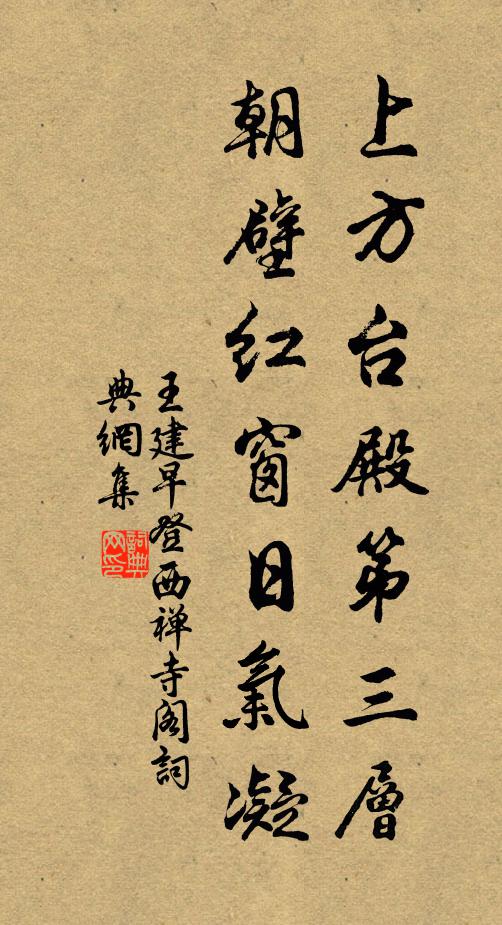 上方台殿第三層
朝壁红窗日氣凝
王建早登西禅寺阁詞
典網集
詞典
网印